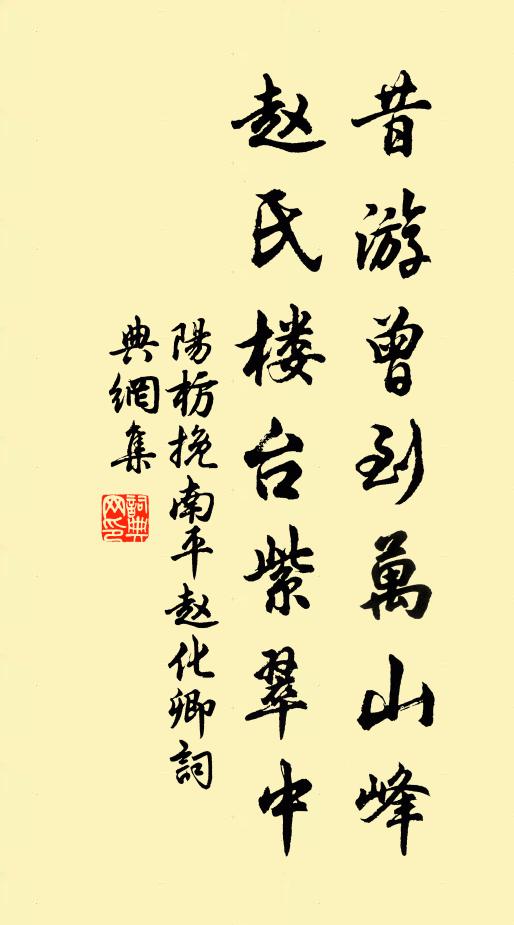 昔游曾到萬山峰
赵氏楼台紫翠中
陽枋挽南平赵化卿詞
典網集
詞典
网印